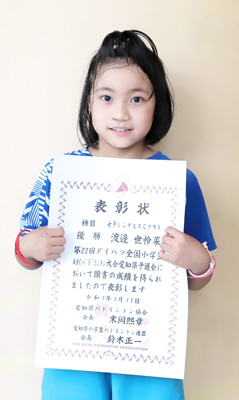 表彰状
種目 女子シングルスCクラス
優勝 渡邉 世怜菜
第22回ダイハツ全国小学生
ABCバドミントン大会愛知県予選会に
おいて頭書の成績を得られ
ましたので表彰します
愛知県バドミントン協会
会長 末岡熙章
愛知県小学生バドミントン連盟
会長 鈴木正一